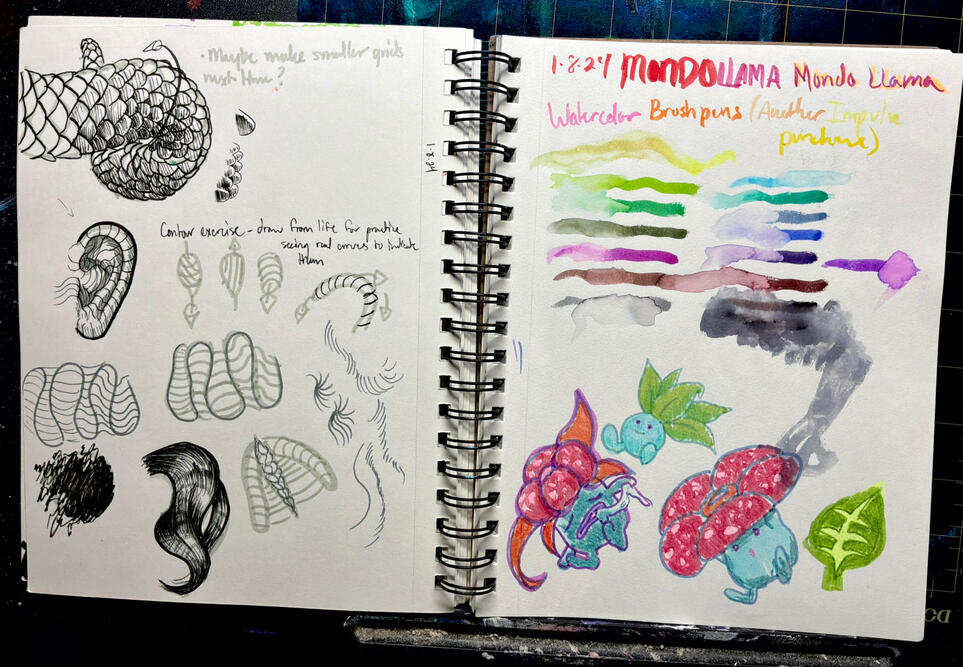 • Maybe make smaller grids
next time?
1-8-24
Contour exercise - draw from life for practice
seeing real curves to indicate
them
1.8.24 MONDOLLAMA Mondo Llama
Watercolor Brush pens (Another Impulse
purchase)
ca